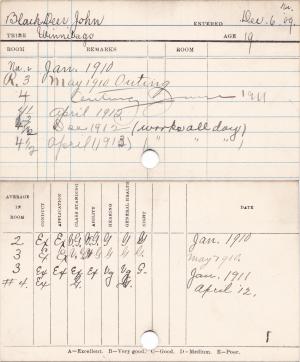 Nr.
BlackDeer John ENTERED Dec. 6, 09.
TRIBE Winnebago AGE 19
ROOM REMARKS ROOM
No. 2 Jan. 1910
R. 3 May 1910 Outing
4 1911
4/1 April 1912
4/2 Dec 1912 (works all day)
4/2 April (1913) " " "
AVERAGE IN ROOM CONDUCT APPLICATION CLASS STANDING ABILITY HEARING GENERAL HEALTH SIGHT DATE
2 Ex Ex G G G G Jan. 1910
3 Ex Ex G May 1910
3 Ex Ex Ex Ex Vg Vg G. Jan. 1911
#4. Ex G. G. April '12.
A—Excellent. B—Very good. C—Good. D—Medium. E—Poor.